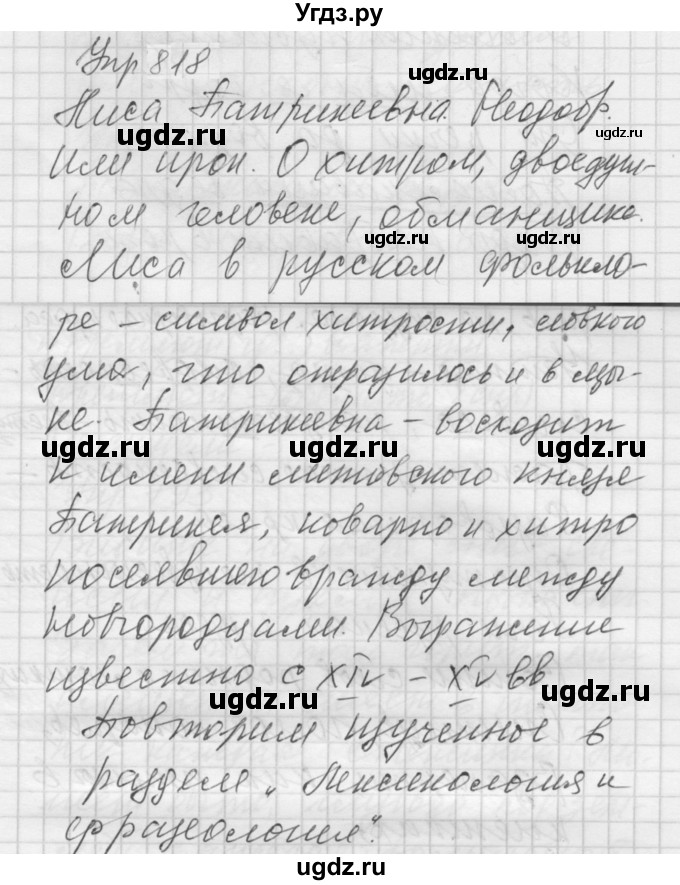 Угдз.ру
Упр 818
Лиса Патрикеевна. Неодобр.
или ирон. О хитром, двоедуш-
ном человеке, обманщике.
Лиса в русском фолькло-
ре – символ хитрости, ловкого
ума, что отразилось и в язы-
ке. Патрикеевна – восходит
к имени литовского князя
Патрикея, коварно и хитро
посеявшего вражду между
новгородцами. Выражение
известно с XIV – XV вв
Повторим изученное в
разделе „Лексикология и
фразеология".
ugdz.ru
ugdz.ru
ugdz.ru
ugdz.ru
ugdz.ru
ugdz.ru
ugdz.ru
ugdz.ru
ugdz.ru
ugdz.ru
ugdz.ru
ugdz.ru
ugdz.ru